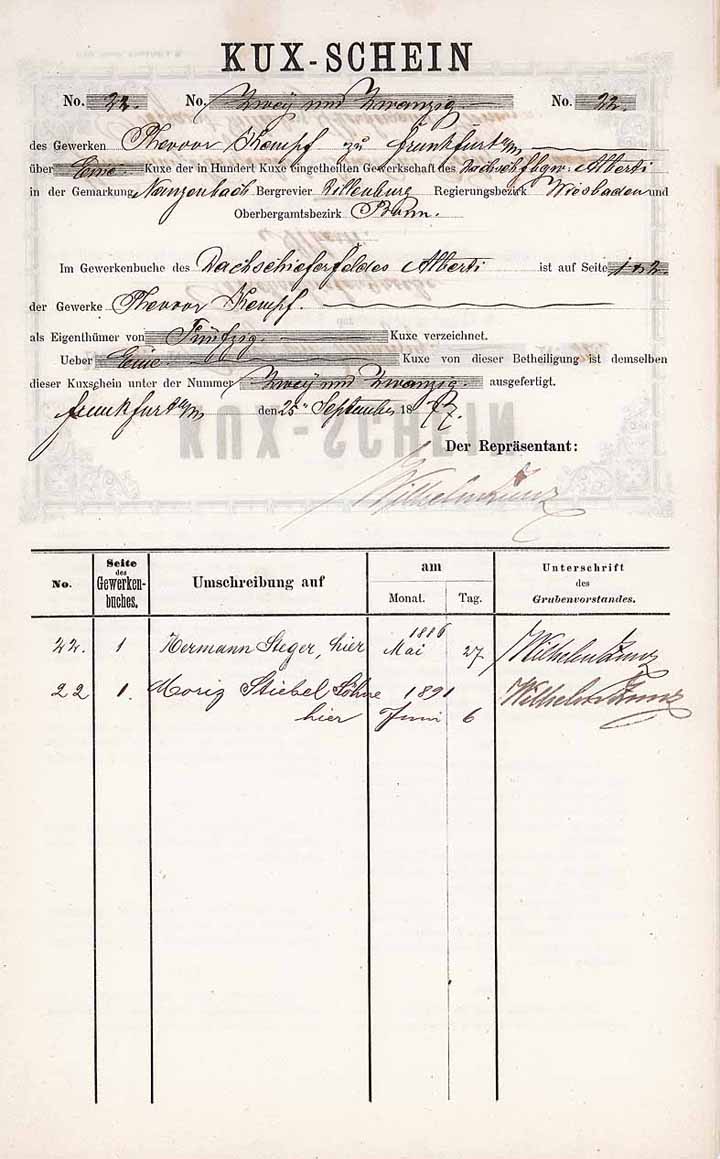 KUX-SCHEIN
No. 22. No. Zwey und Zwanzig. No. 22.
des Gewerken Theodor Kempf zu Frankfurt a/M
über Eine Kuxe der in Hundert Kuxe eingetheilten Gewerkschaft des Alberti
in der Gemarkung Nanzenbach Bergrevier Dillenburg Regierungsbezirk Wiesbaden und
Oberbergamtsbezirk Bonn.
Im Gewerkenbuche des Dachschieferfeldes Alberti ist auf Seite 1 & 2
der Gewerke Theodor Kempf.
als Eigenthümer von Fünfzig. Kuxe verzeichnet.
Ueber Eine Kuxe von dieser Betheiligung ist demselben
dieser Kuxschein unter der Nummer Zwey und Zwanzig. ausgefertigt.
Frankfurt a/M den 25n September 1877.
KUX-SCHEIN
Der Repräsentant:
Wilhelm
No.
Seite
des
Gewerken-
buches.
Umschreibung auf
am
Monat. Tag.
Unterschrift
des
Grubenvorstandes.
1886
22. 1 Hermann Steger, hier Mai 27 Wilhelm
22 1. Moriz Stiebel Söhne 1891 Wilhelm
hier Juni 6